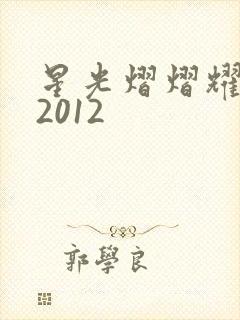 星光熠熠耀
2012
郭學良